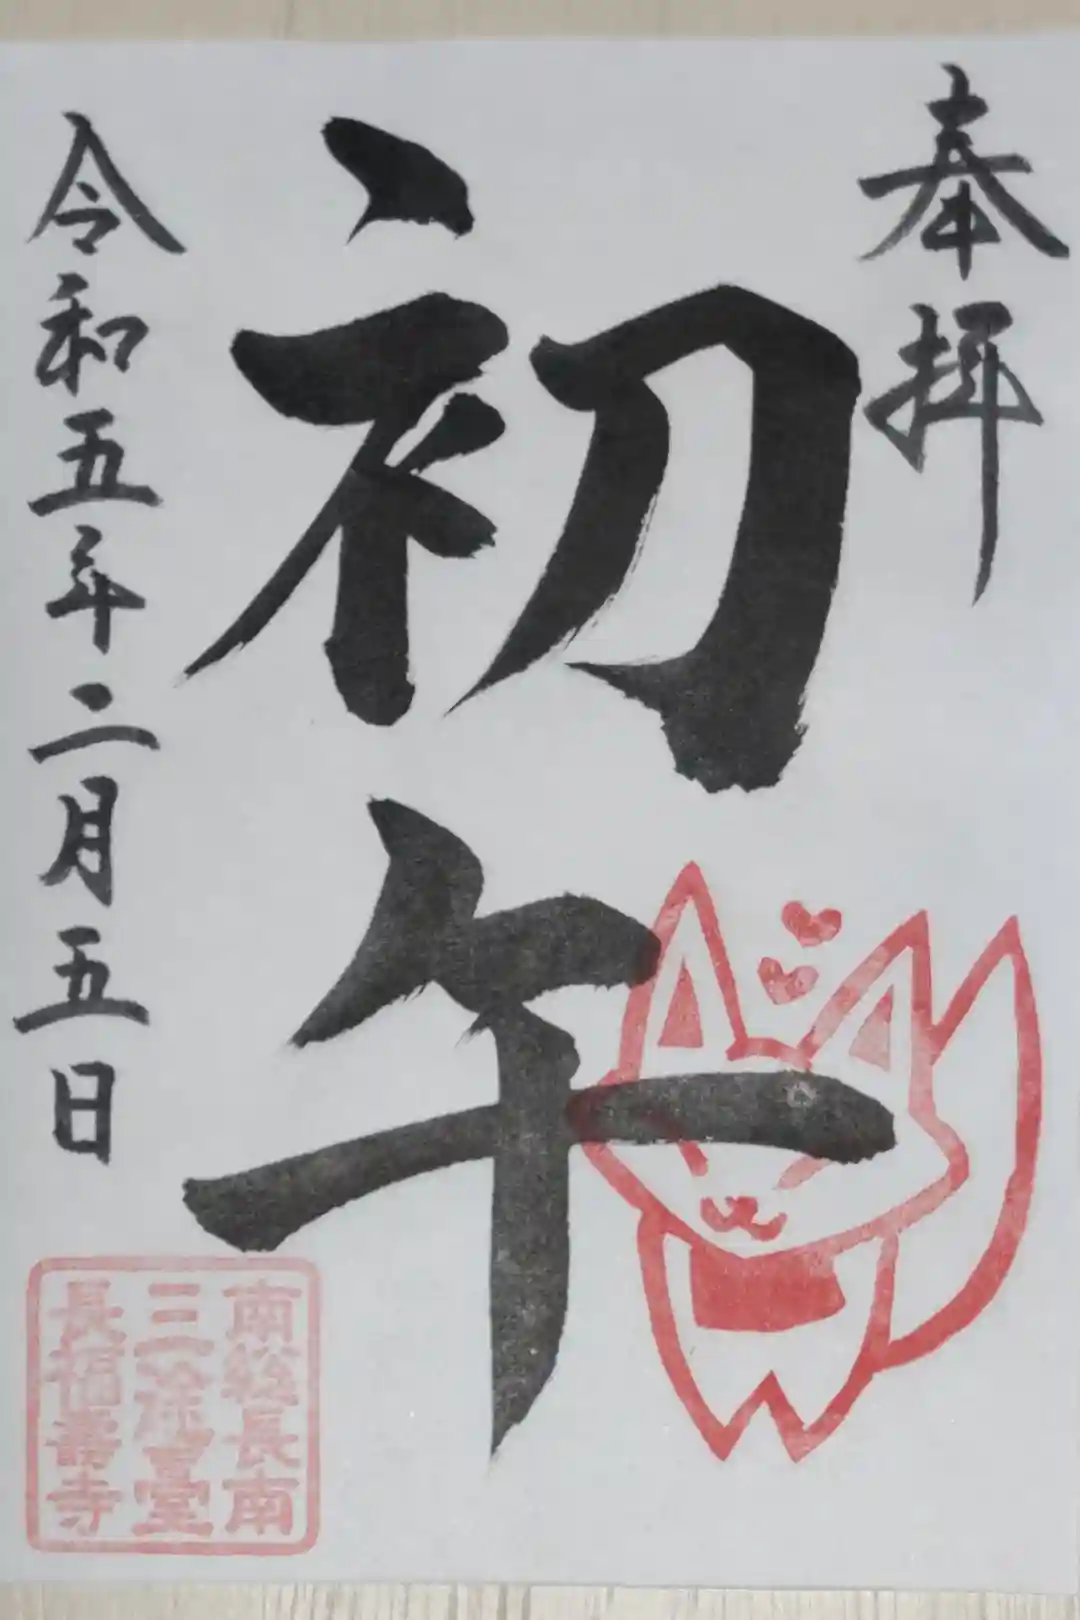 奉拝
初午
令和五年二月五日
南総長南
三途臺
長福壽寺